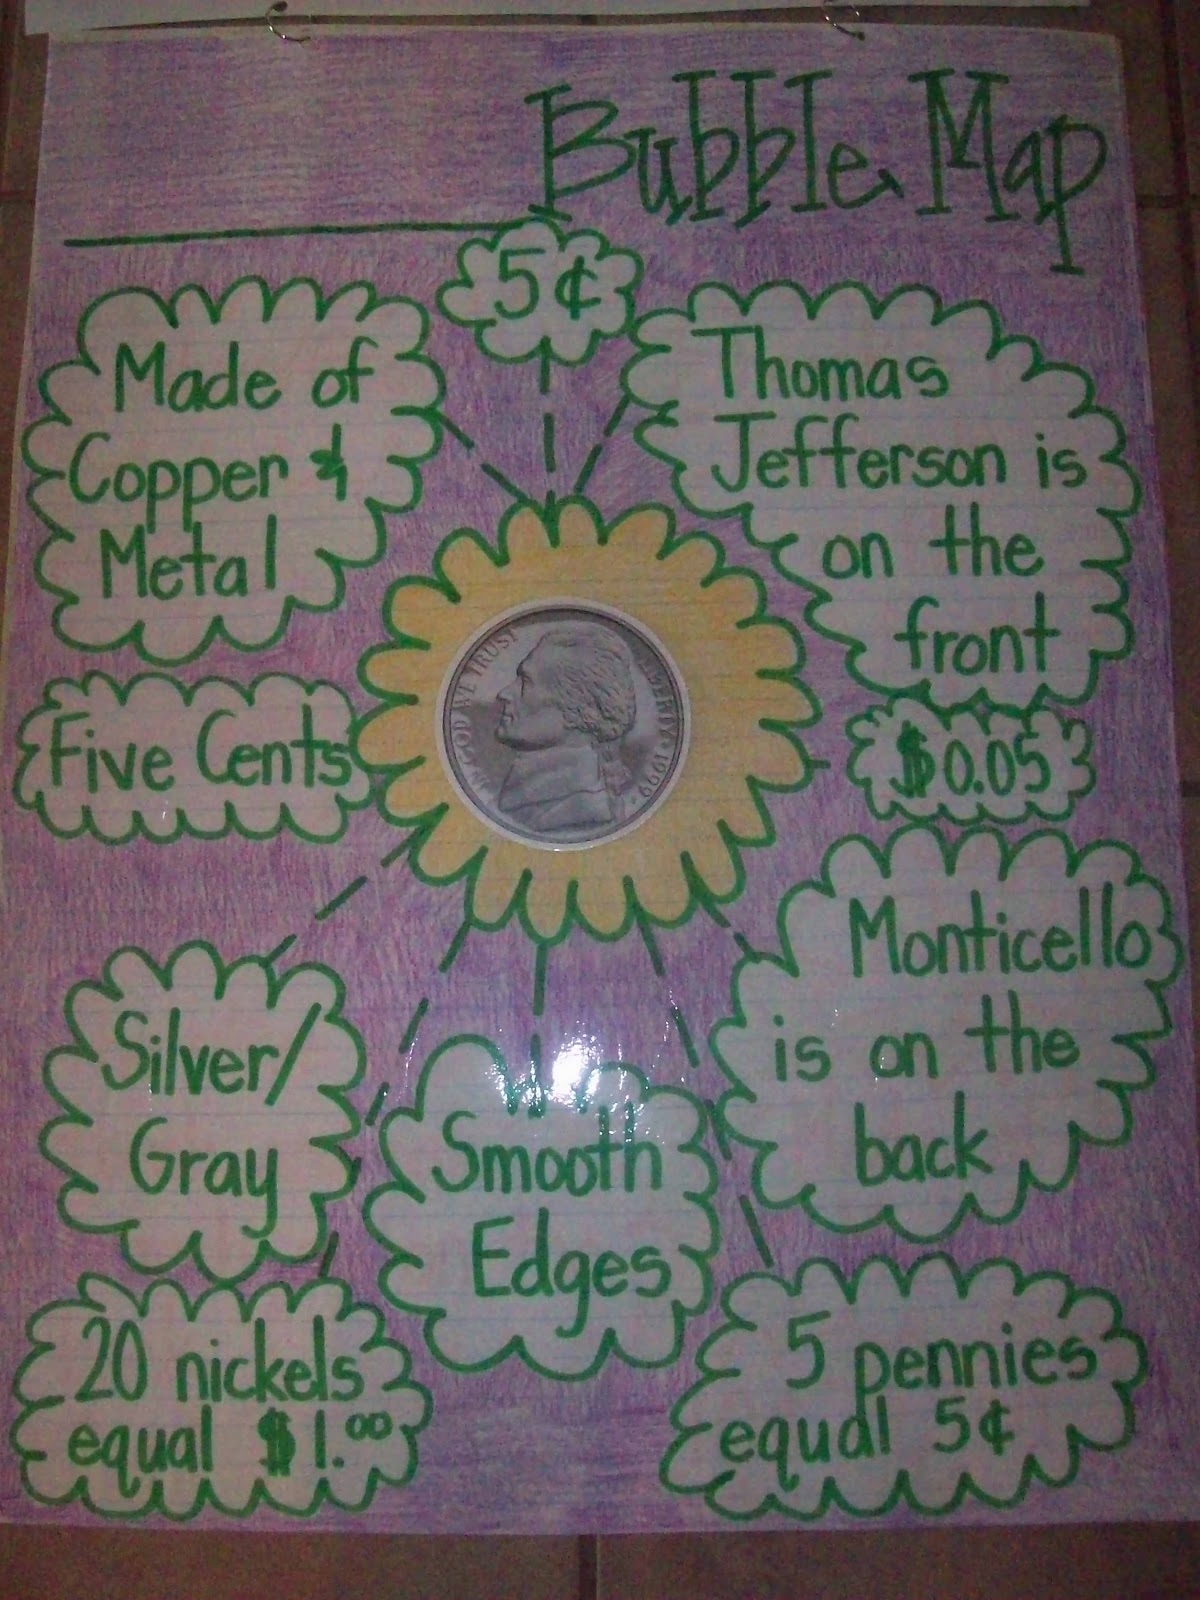 Bubble Map
5¢
Made of
Copper &
Metal
Thomas
Jefferson is
on the
front
Five Cents
IN GOD WE TRUST
LIBERTY • 1999
$0.05
Monticello
is on the
back
Silver/
Gray
Smooth
Edges
20 nickels
equal $1.00
5 pennies
equal 5¢